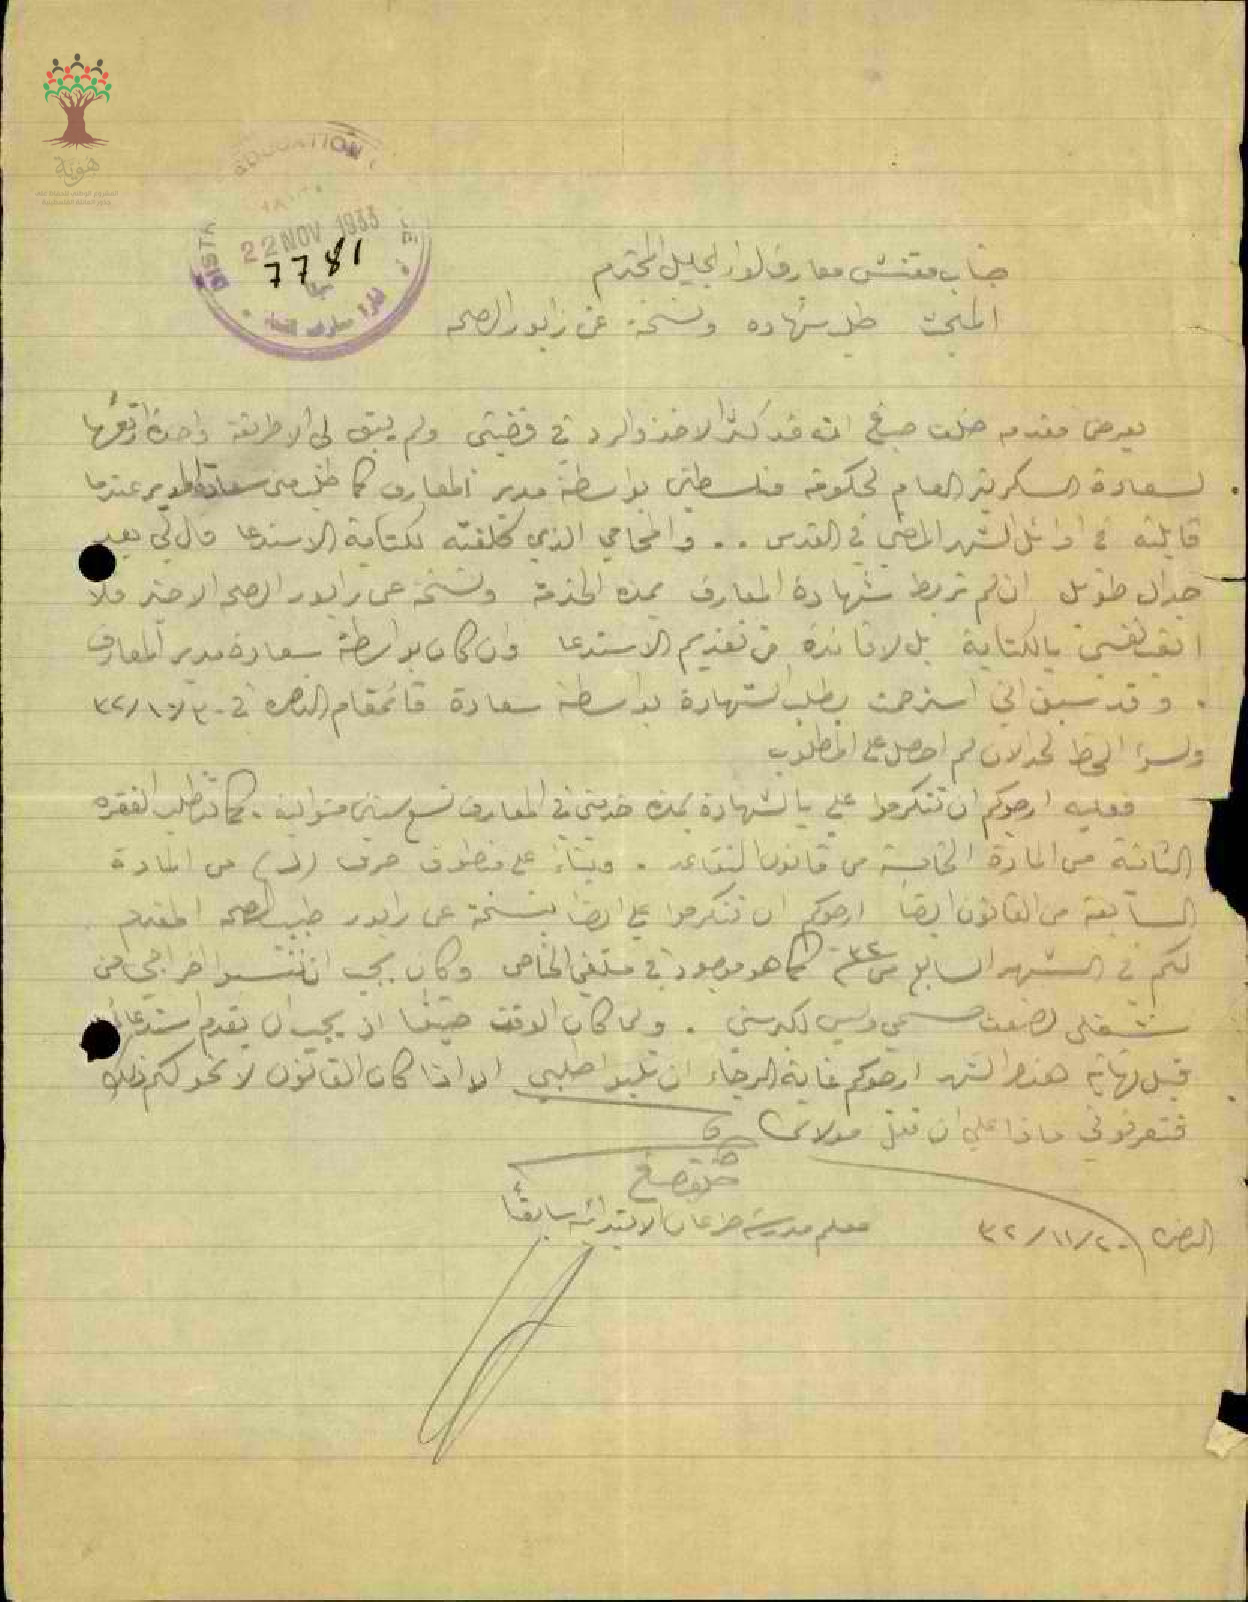 هوية
EDUCATION
DIST
22 NOV 1933
7781
جناب مفتش معارف لواء الجليل المحترم
المبحث طلب شهاده ونسخة عن رابور الصحه
يعرض مقدمه خلف صبغ انه قد كثر الاخذ والرد في قضيتي ولم يبق لي الا طريقة واحدة ارفعها
لسعادة السكرتير العام لحكومة فلسطين بواسطة مدير المعارف كما طلب مني سعادة المدير عندما
قابلته في اوائل الشهر الماضي في القدس .. والمحامي الذي كلفته لكتابة الاستدعا قال لي بعد
جدال طويل ان لم تربط شهادة المعارف بمدة الخدمة ونسخة عن رابور الصحه الاخير فلا
اتعب نفسي بالكتابة بل لا فائدة من تقديم الاستدعا وان كان بواسطة سعادة مدير المعارف
. وقد سبق اني استرحمت بطلب الشهادة بواسطة سعادة قائمقام الناصرة في ٣٠/١٠/٣٣
ولسؤ الحظ لحد الان لم احصل على المطلوب
فعليه ارجوكم ان تتكرموا علي بالشهادة بمدة خدمتي في المعارف تسع سنين متوالية . كما تطلب الفقره
الثانية من المادة الخامسة من قانون التقاعد . وبناءً على منطوق حرف (د) من المادة
السابعة من القانون ايضاً ارجوكم ان تتكرموا علي ايضاً بنسخة عن رابور طبيب الصحه المقدم
لكم في الشهر السابع من ٣٣ كما هو موجود في ملفي الخاص وكان يجب ان تنسبوا اخراجي من
شغلي لضعف جسمي وليس لكبر سني . ولما كان الوقت ضيقاً اذ يجب ان يقدم استدعائي
قبل نهاية هذا الشهر ارجوكم غاية الرجاء ان تلبوا طلبي الا اذا كان القانون لا يخولكم ذلك
فتعرفوني ماذا علي ان افعل مولاي
خلف صبغ
معلم مدرسة طرعان الابتدائية سابقاً
الناصرة ٢٠/١١/٣٣